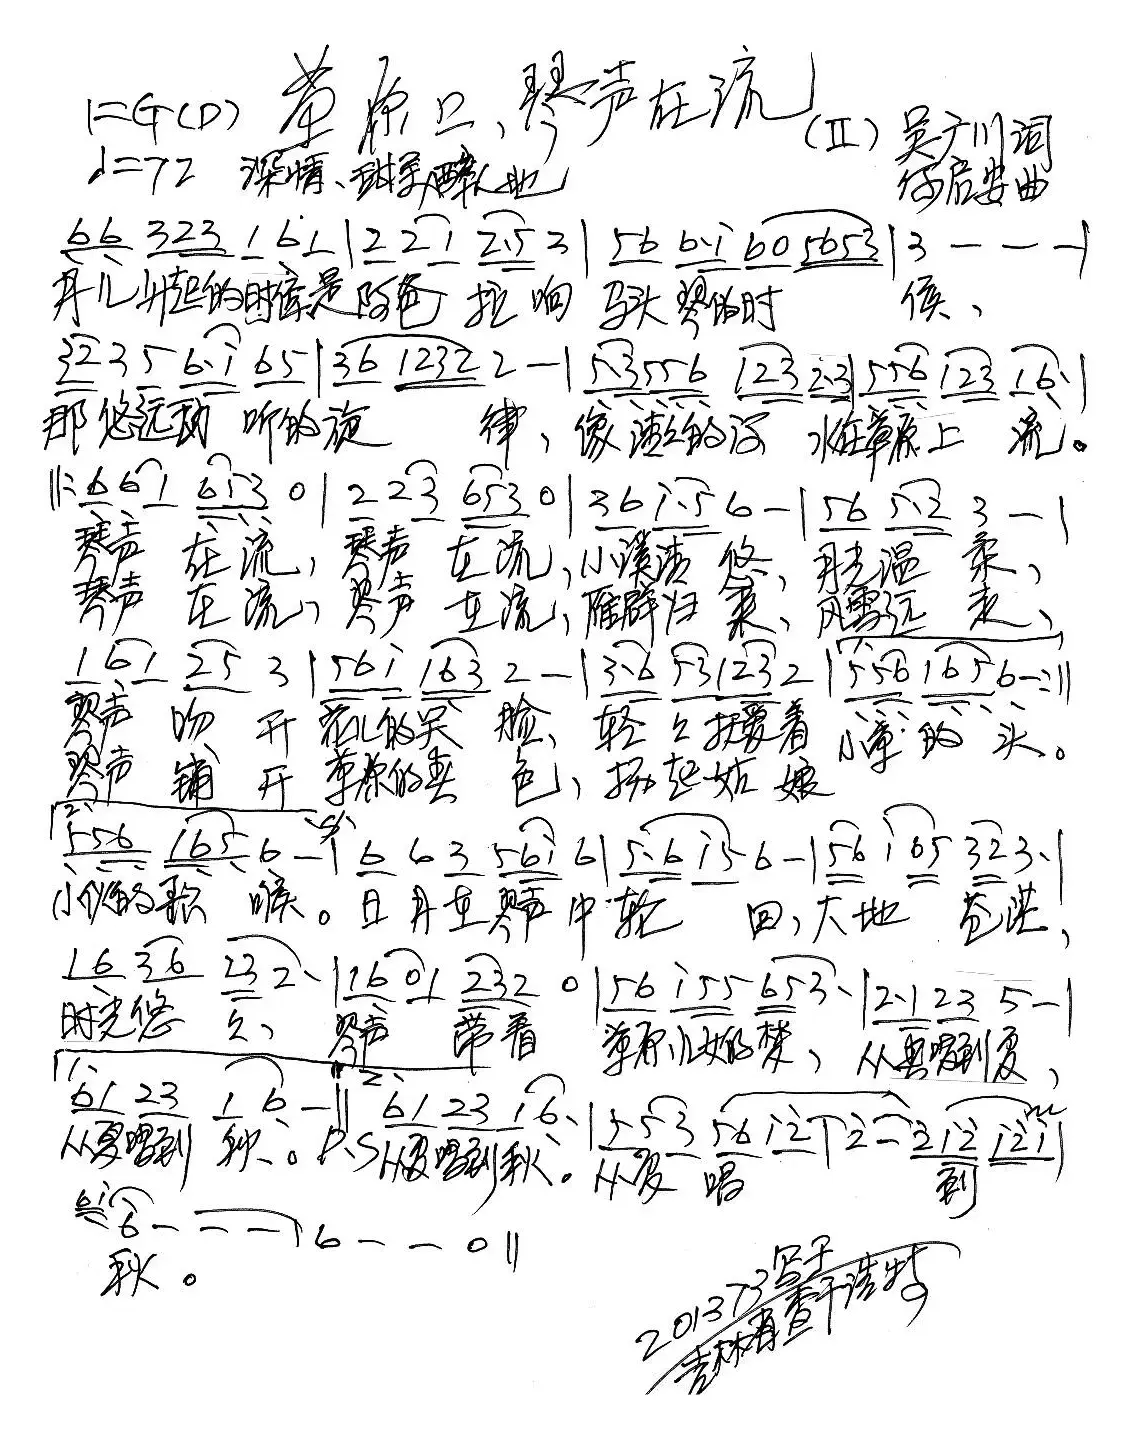 1=G(D) 草原上,琴声在流 (II) 吴广川词
♩=72 深情、甜美、醉人地 何启安曲
66 323 1 61 | 2 21 2·5 3 | 56 6·i 60 5653 | 3 - - - |
月儿升起的时候是阿爸拉响马头琴的时候、
323 5 6·i 65 | 36 1232 2 - | 5·3556 123 2·3 | 556 123 16· |
那悠远动听的旋律、像清清的河水在草原上流。
||: 661 653 0 | 2 23 653 0 | 36 i·5 6 - | 56 5·2 3 - |
琴声在流,琴声在流,小溪清悠,月光温柔,
琴声在流,琴声在流,雁群归来、风雪远走,
1 61 25 3 | 56i 163 2 - | 3·6 53123 2 | 556 165 6 - :||
琴声吻开花儿的笑脸、轻轻抚爱着小草的头。
琴声铺开草原的春色、扬起姑娘
2. 556 165 6 - | 6 6 3 56i 6 | 5·6 i5 6 - | 56 i 65 323· |
小伙的歌喉。日月在琴声中轮回,大地苍茫,
16 36 23 2· | 1601 232 0 | 56 i55 653· | 2·1 23 5 - |
时光悠久、琴声带着草原儿女的梦,从春唱到夏,
1. 61 23 1 6 - || 2. 61 23 16· | 553 56 i2 | 2 - 212 i2i |
从夏唱到秋、。D.S 从夏唱到秋。从夏唱到
6i 6 - - - | 6 - - 0 ||
秋。
201373写于
吉林省查干浩特